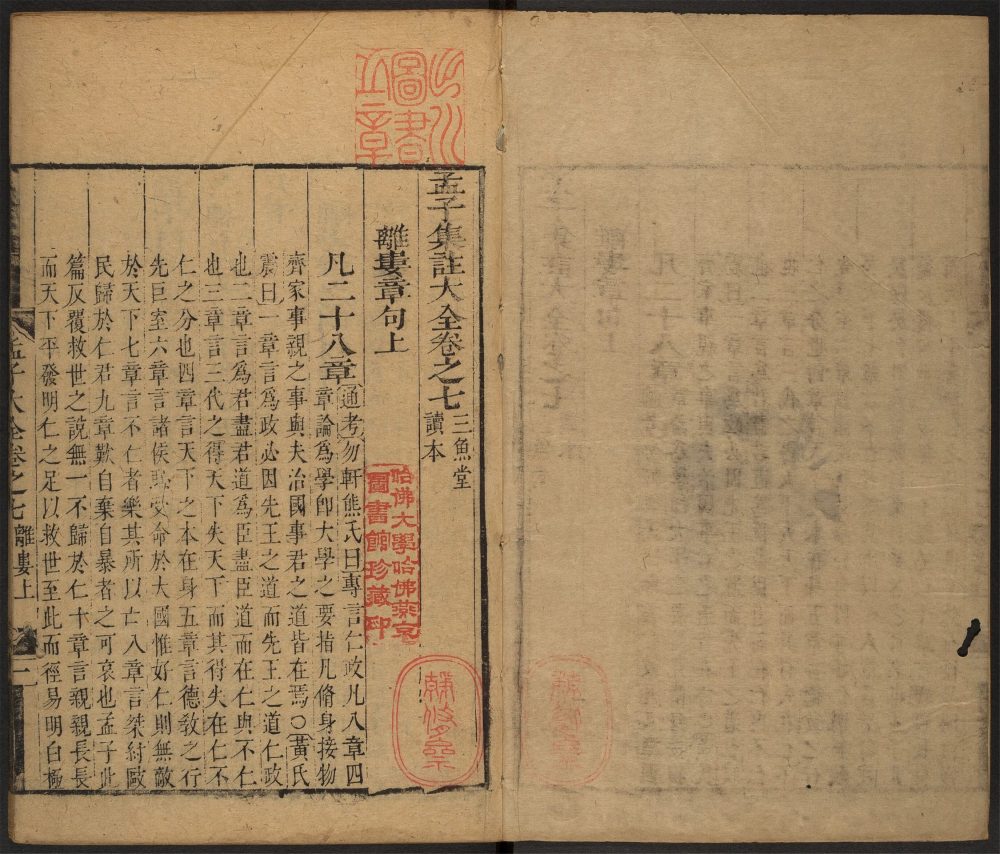 孟子集註大全卷之七
三魚堂
讀本
離婁章句上
凡二十八章
通考勿軒熊氏曰專言仁政凡八章四
章論爲學卽大學之要指凡脩身接物
齊家事親之事與夫治國事君之道皆在焉○黃氏
震曰一章言爲政必因先王之道而先王之道仁政
也二章言爲君盡君道爲臣盡臣道而在仁與不仁
也三章言三代之得天下失天下而其得失在仁不
仁之分也四章言天下之本在身五章言德敎之行
先巨室六章言諸侯恥受命於大國惟好仁則無敵
於天下七章言不仁者樂其所以亡八章言桀紂歐
民歸於仁君九章歎自棄自暴者之可哀也孟子此
篇反覆救世之說無一不歸於仁十章言親親長長
而天下平發明仁之足以救世至此而徑易明白極
孟子大全卷之七 離婁上 一
圖書
哈佛大學哈佛燕京
圖書館珍藏印